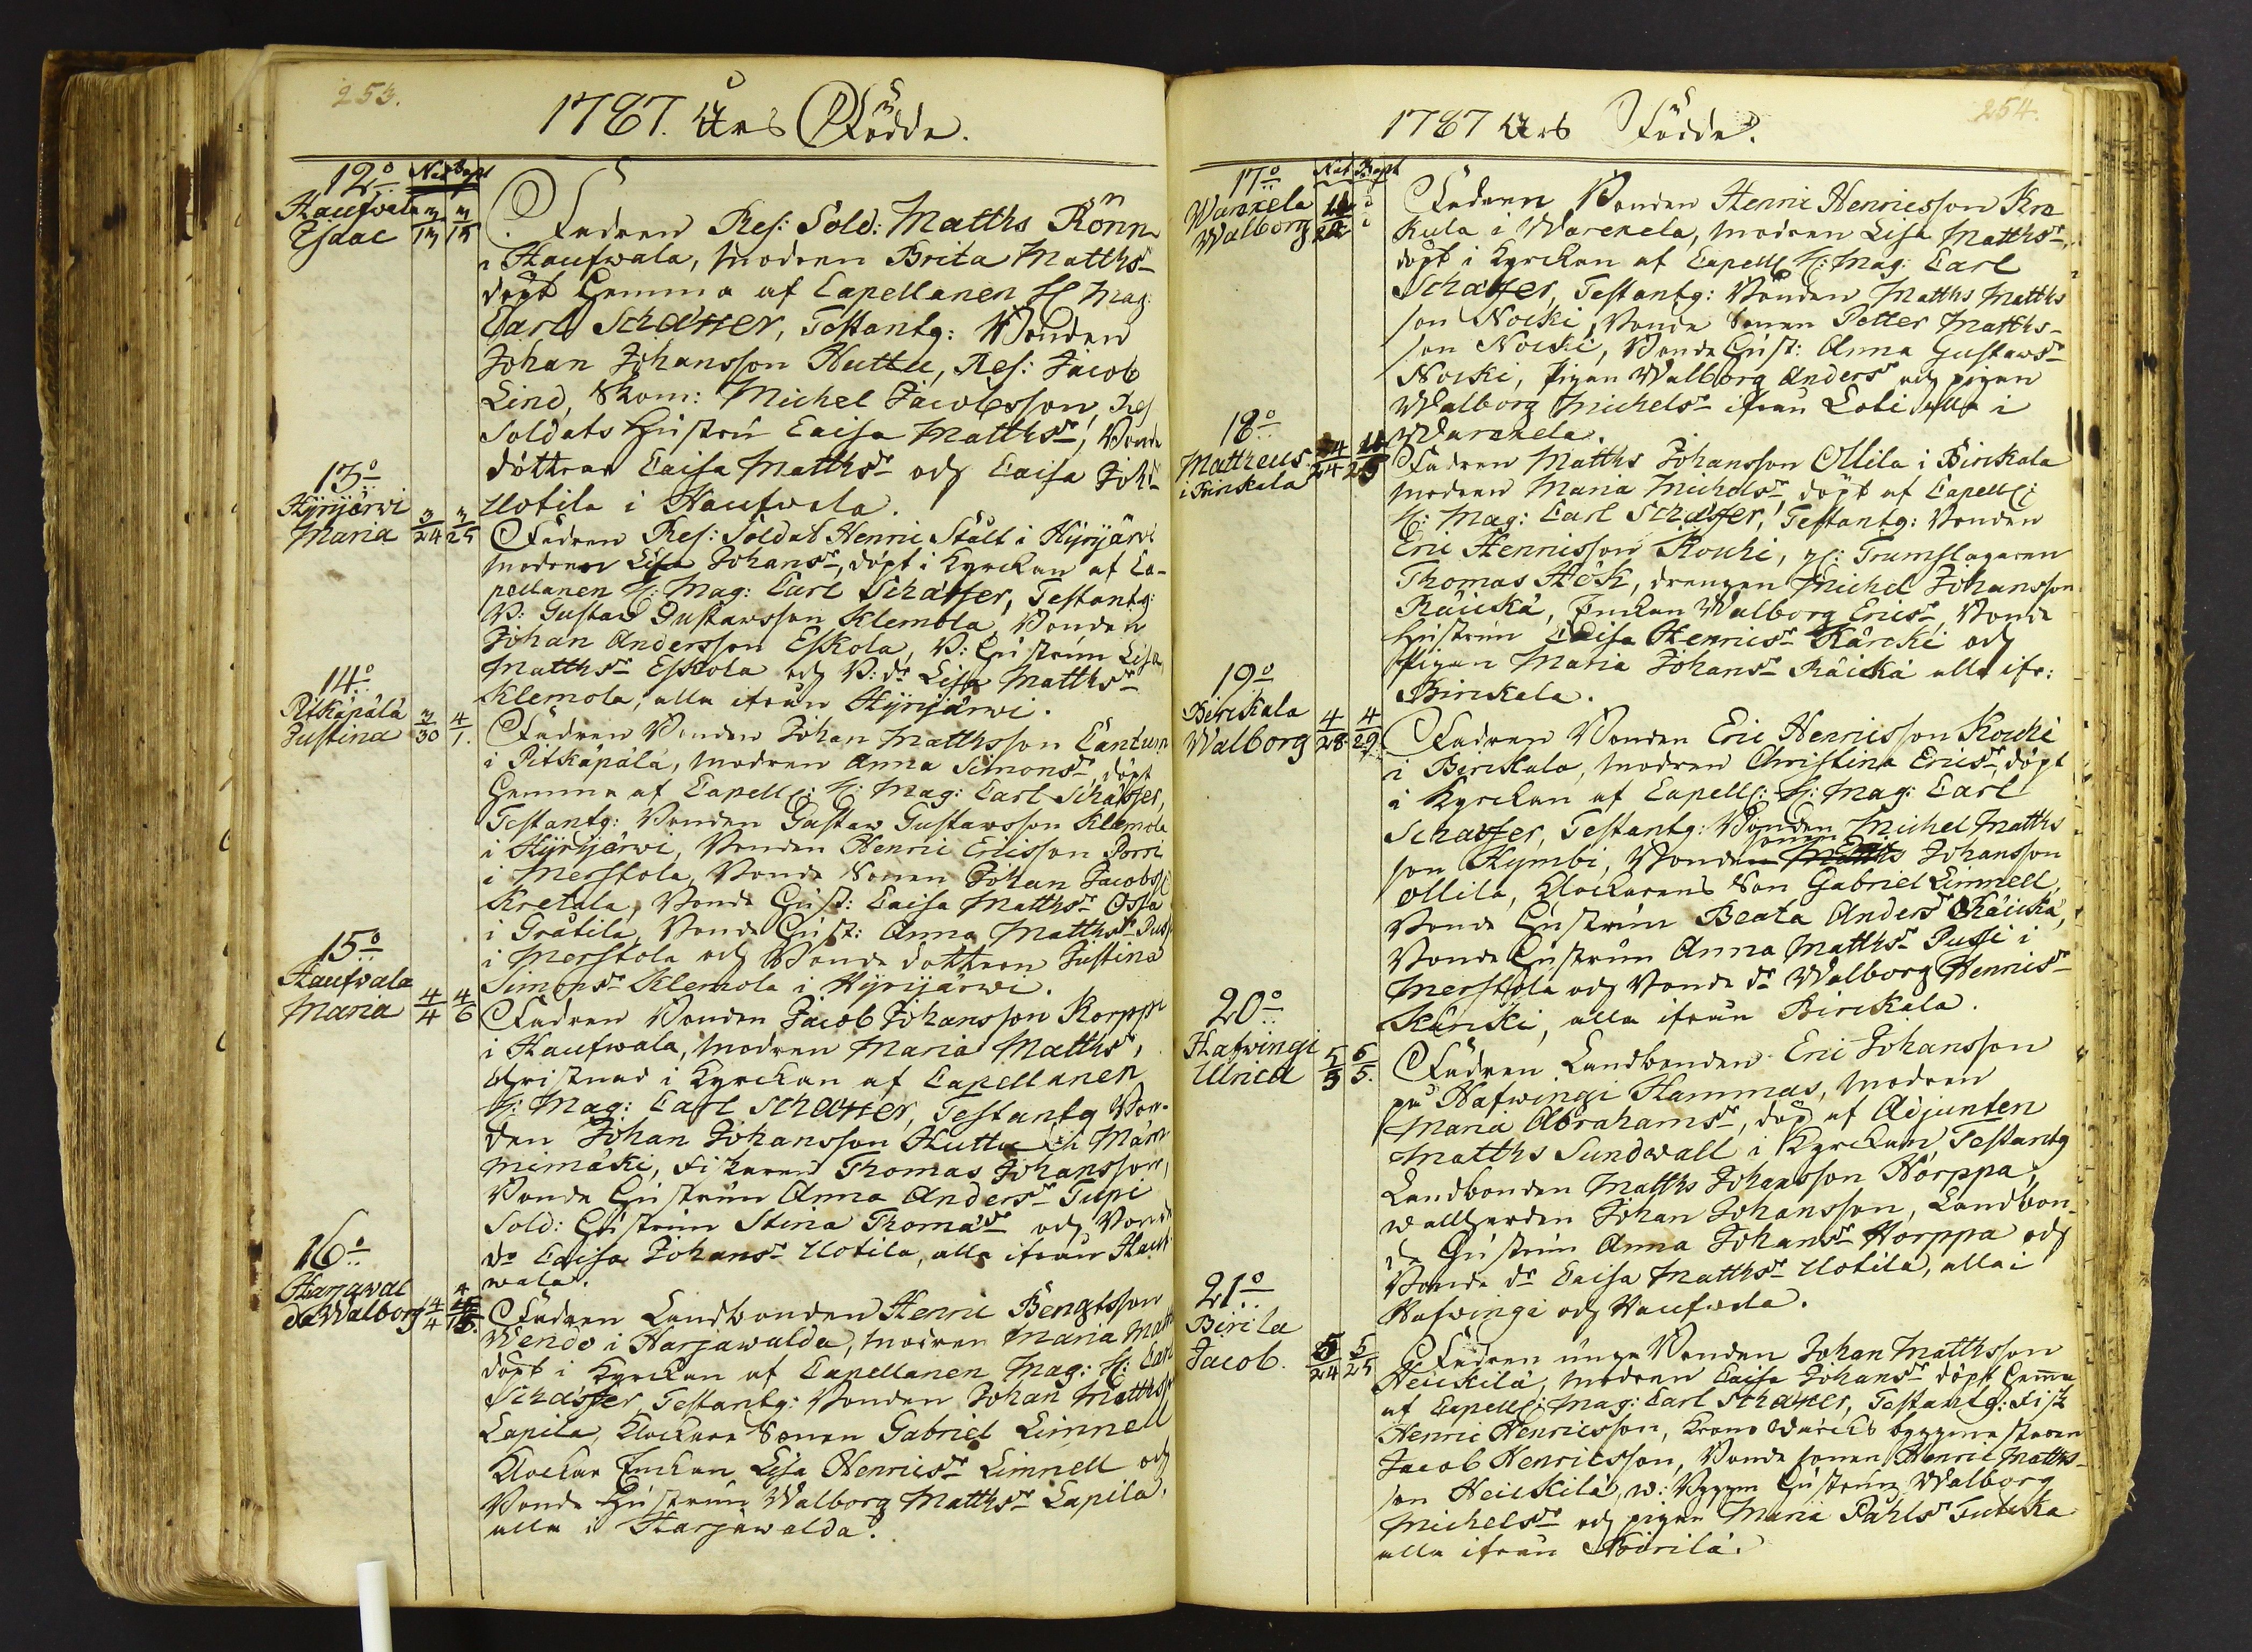 253.
1787. Års Födde.
12o Nat Bapt
Haufwala 3 3
Isaac 13 15
Fadren Res: Sold: Matths Rönn
i Haufwala, Modren Brita Matthsdr
döpt hemma af Capellanen H Mag:
Carl Schæffer, Testantg: Bonden
Johan Johansson Huttu, Res: Jacob
Lind, Skom: Michel Jacobsson, Res
Soldats Hustru Caisa Matthsdr, Bonde
döttrar Caisa Matthsdr och Caisa Johdr
Uotila i Haufwala.
13o
Hyrijärwi 3 3
Maria 24 25
Fadren Res: Soldat Henric Stålt i Hyrijärwi
modren Lisa Johansdr, döpt i Kyrckan af Ca-
pellanen H: Mag: Carl Schæffer, Testantg:
B: Gustaf Gustawsson Klemola, Bonden
Johan Andersson Eskola, B: Hustrun Lisa
Matthsdr Eskola och B: dr Lisa Matthsdr
Klemola, alla ifrån Hyrijärwi.
14o
Pitkäpälä 3 4
Justina 30 1.
Fadren Bonden Johan Matthsson
i Pitkäpälä, modren Anna Simonsdr, döpt
hemma af Capell: H: Mag: Carl Schæffer,
Testantg: Bonden Gustaw Gustawsson Klemola
i Hyrijärwi, Bonden Henric Ericsson Porri
i Merstola, Bonde Sonen Johan Jacobss
Kretala, Bonde Hust: Caisa Matthsdr Ossa
i Gråtila, Bonde Hust: Anna Matthsdr Puss
i Merstola och Bonde dottren Justina
Simonsdr Klemola i Hyrijärwi.
15o
Haufwala
Maria 4 4
4 6
Fadren Bonden Jacob Johansson Korppi
i Haufwala, modren Maria Matthsdr,
Christnad i Kyrckan af Capellanen
H: Mag: Carl Schæffer, Testantg Bon-
den Johan Johansson Huttu i
mimäki, Fiskaren Thomas Johansson,
Bonde Hustrun Anna Andersdr Tupi
Sold: Hustrun Stina Thomædr och Bonde
dr Caisa Johansdr Uotila, alla ifrån Hauf
wala.
16o
Harjawal
da Walborg 14 4
4 15.
Fadren Landbonden Henric Bengtsson
Wendo i Harjawalda, modren Maria Matt
döpt i Kyrckan af Capellanen Mag: H: Carl
Schæffer, Testantg: Bonden Johan Matthss
Lapila, Klockare Sonen Gabriel Limnell
Klockar Enckan Lisa Henricsdr Limnell och
Bonde Hustrun Walborg Matthsdr Lapila.
alla i Harjawalda.
254.
1787 Års Födde.
17o Nat Bapt
Warekela
Walborg
Fadren Bonden Henric Henricsson
Kula i Warekela, modren Lisa Matthsdr,
döpt i Kyrckan af Capell H: Mag: Carl
Schæffer, Testantg: Bonden Matths Matths
son Nocki, Bonde Sonen Petter Matths-
son Nocki, Bonde Hust: Anna Gustawsdr
Nocki, pigan Walborg Andersdr och pigan
Walborg Michelsdr ifrån alla i
Warekela.
18o
Mattheus 4
i Birckala 24 25
Fadren Matths Johansson Ollila i Birckala
modren Maria Michelsdr, döpt af Capell:
H: Mag: Carl Schæffer, Testantg: Bonden
Eric Henricsson Kouhi, Trumslagaren
Thomas Hök, drengen Michel Johansson
Räickä, Enckan Walborg Ericsdr, Bonde
Hustrun Caisa Henricsdr Kärcki och
Pigan Maria Johansdr Räickä alla ifr:
Birckala.
19o
Birckala 4 4
Walborg 28 29
Fadren Bonden Eric Henricsson Kouhi
i Birckala, modren Christina Ericsdr, döpt
i Kyrckan af Capell: H: Mag: Carl
Schæffer, Testantg: Bonden Michel Matths
son Kymbi, Bonden Sonen Matths Johansson
Ollila, Klockarens Son Gabriel Limnell,
Bonde Hustrun Beata Andersdr Räickä,
Bonde Hustrun Anna Matthsdr Pussi i
Merstola och Bonde dr Walborg Henricsdr
Kärcki, alla ifrån Birckala.
20o
Hafwingi 5 5
Ulrica 3 5.
Fadren Landbonden Eric Johansson
på Hafwingi Hammas, modren
Maria Abrahamsdr, döp af Adjuncten
Matths Sundwall i Kyrckan Testantg
Landbonden Matths Johansson Hörppä,
wallherden Johan Johansson, Landbon-
de Hustrun Anna Johansdr Horppa och
Bonde dr Caisa Matthsdr Uotila, alla i
Hafwingi och Haufwala.
21o
Birila 5 5
Jacob. 24 25
Fadren unga Bonden Johan Matthsson
Heickilä, modren Caisa Johansdr döpt hemma
af Capell: Mag: Carl Schæffer, Testantg: Fisk
Henric Henricsson, Krono Wärcks byggmestaren
Jacob Henricsson, Bonde sonen Henric Matths-
son Heickilä, w: Byggm Hustrun Walborg
Michelsdr och pigan Maria Påhlsdr
alla ifrån Birilä.